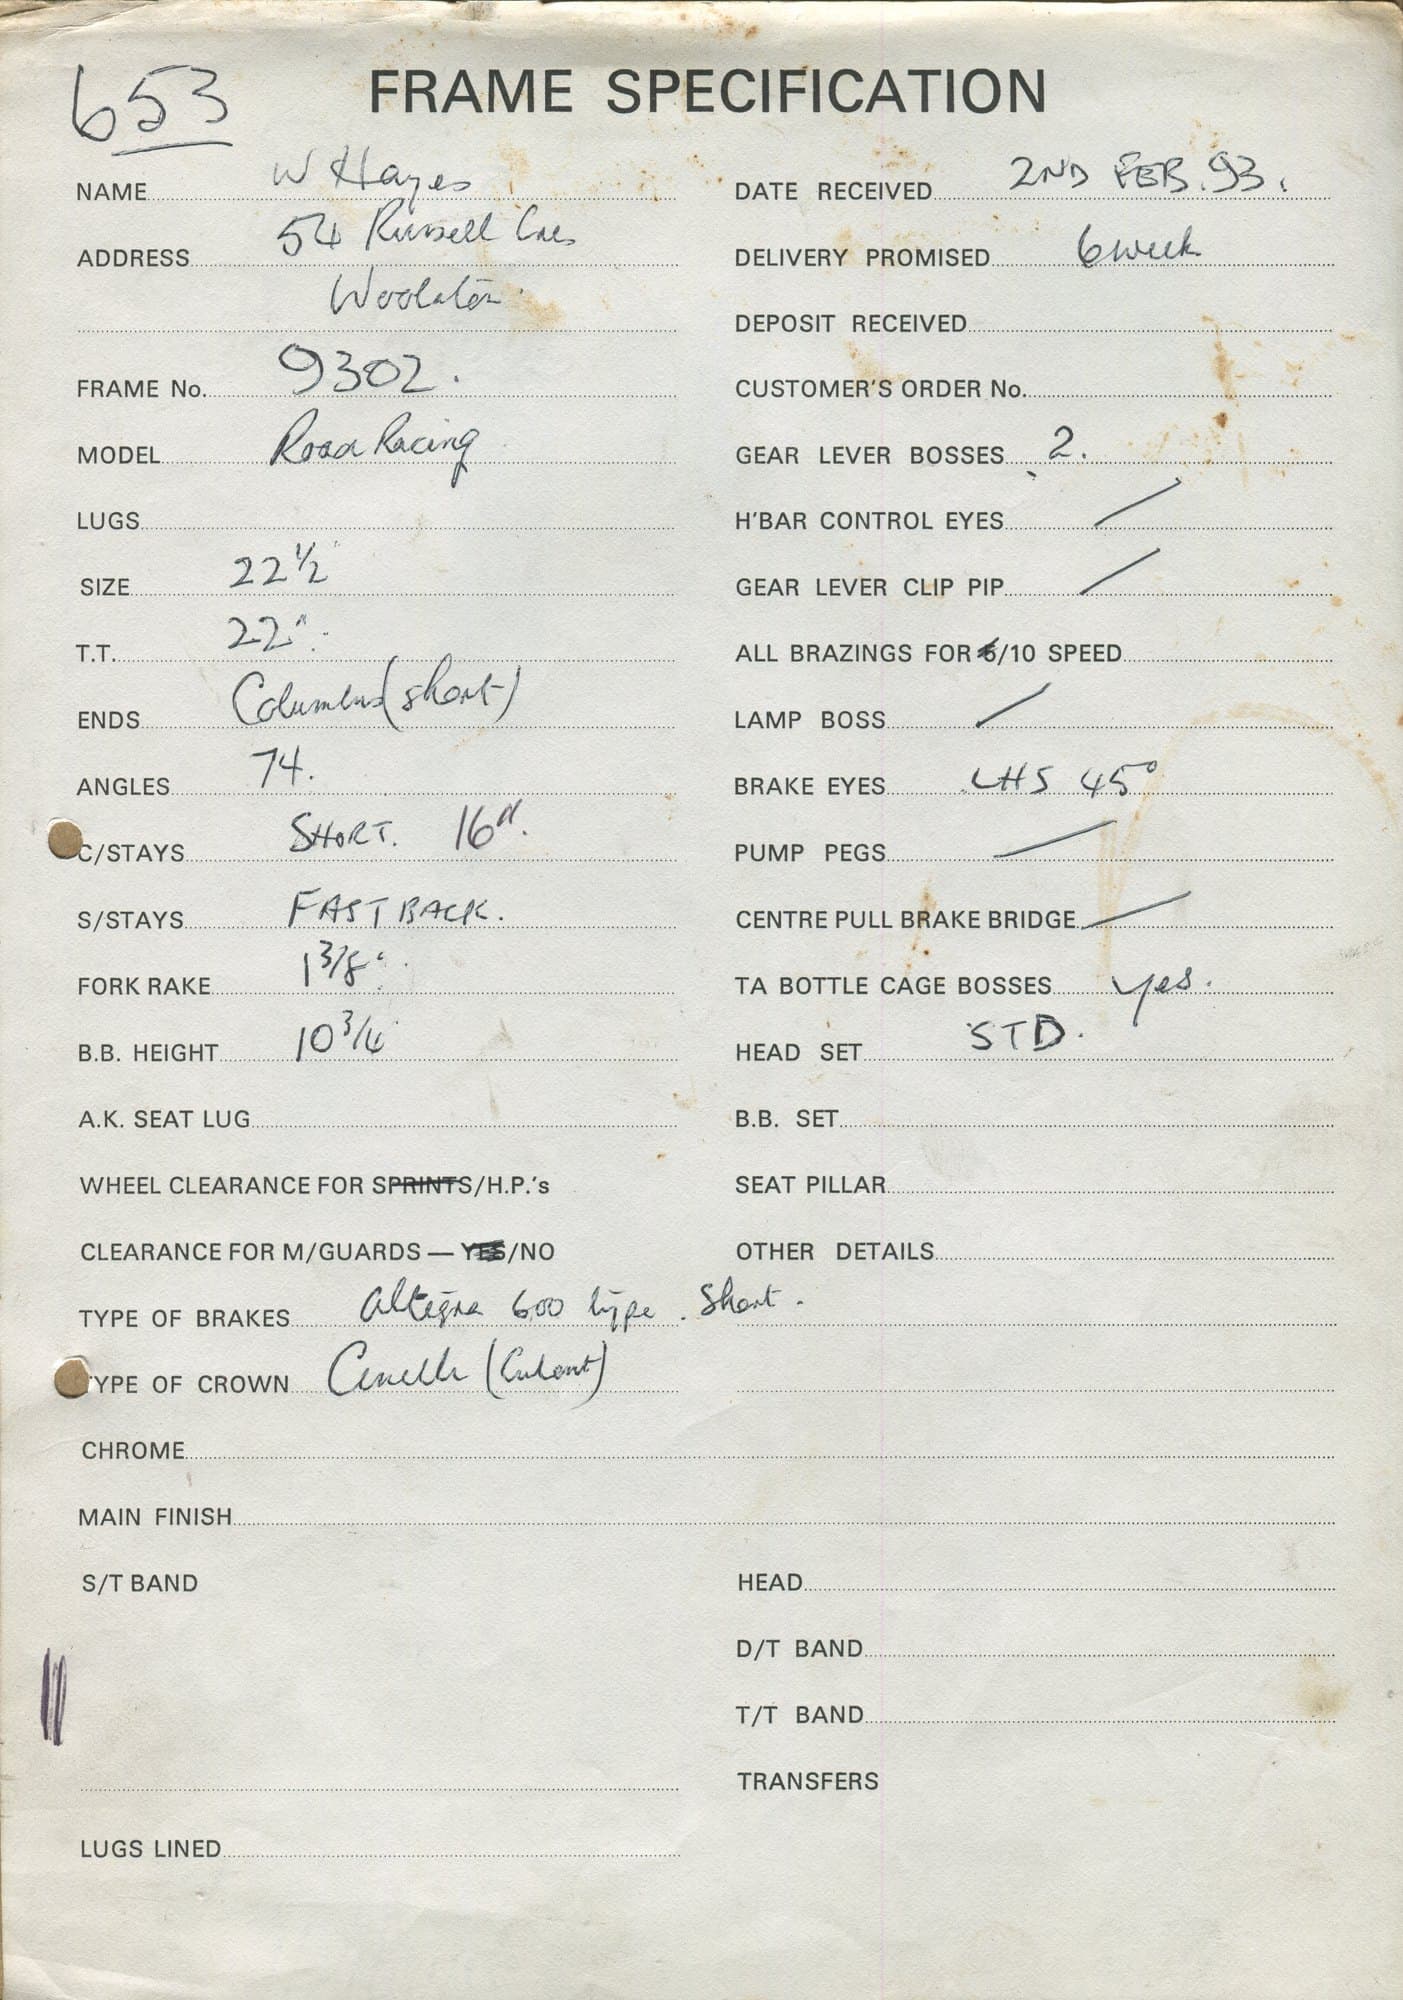 653
FRAME SPECIFICATION
NAME W Hayes
ADDRESS 54 Russell Cres
Woolaton
FRAME No. 9302.
MODEL Road Racing
LUGS
SIZE 22 1/2"
T.T. 22".
ENDS Columbus (short)
ANGLES 74.
C/STAYS SHORT. 16".
S/STAYS FASTBACK.
FORK RAKE 1 3/8".
B.B. HEIGHT 10 3/4
A.K. SEAT LUG
WHEEL CLEARANCE FOR SPRINTS/H.P.'s
CLEARANCE FOR M/GUARDS — YES/NO
TYPE OF BRAKES Altegra 600 type. Short.
TYPE OF CROWN Cinelli
CHROME
MAIN FINISH
S/T BAND
LUGS LINED
DATE RECEIVED 2ND FEB. 93.
DELIVERY PROMISED 6 week
DEPOSIT RECEIVED
CUSTOMER'S ORDER No.
GEAR LEVER BOSSES 2.
H'BAR CONTROL EYES /
GEAR LEVER CLIP PIP /
ALL BRAZINGS FOR 5/10 SPEED
LAMP BOSS /
BRAKE EYES LHS 45°
PUMP PEGS /
CENTRE PULL BRAKE BRIDGE /
TA BOTTLE CAGE BOSSES yes.
HEAD SET STD.
B.B. SET
SEAT PILLAR
OTHER DETAILS
HEAD
D/T BAND
T/T BAND
TRANSFERS